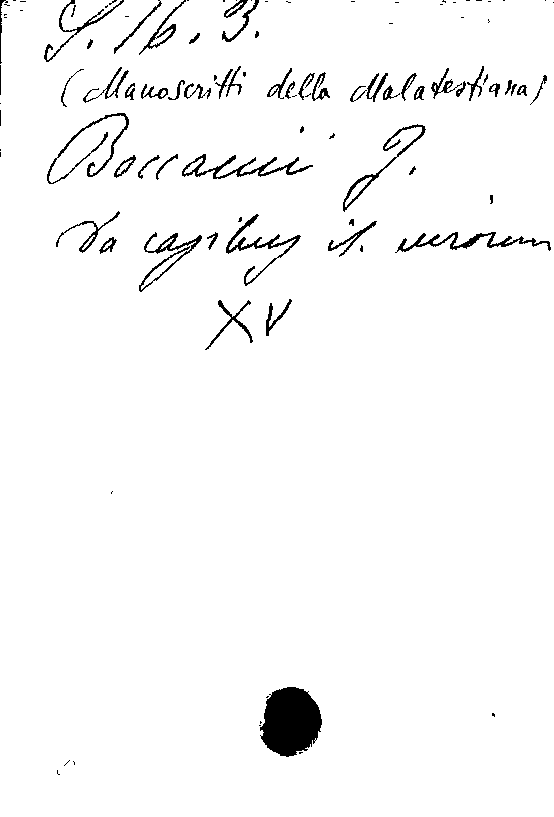 S. 16. 3.
(Manoscritti della Malatestiana)
Boccacci J.
Da casibus il. virorum
XV